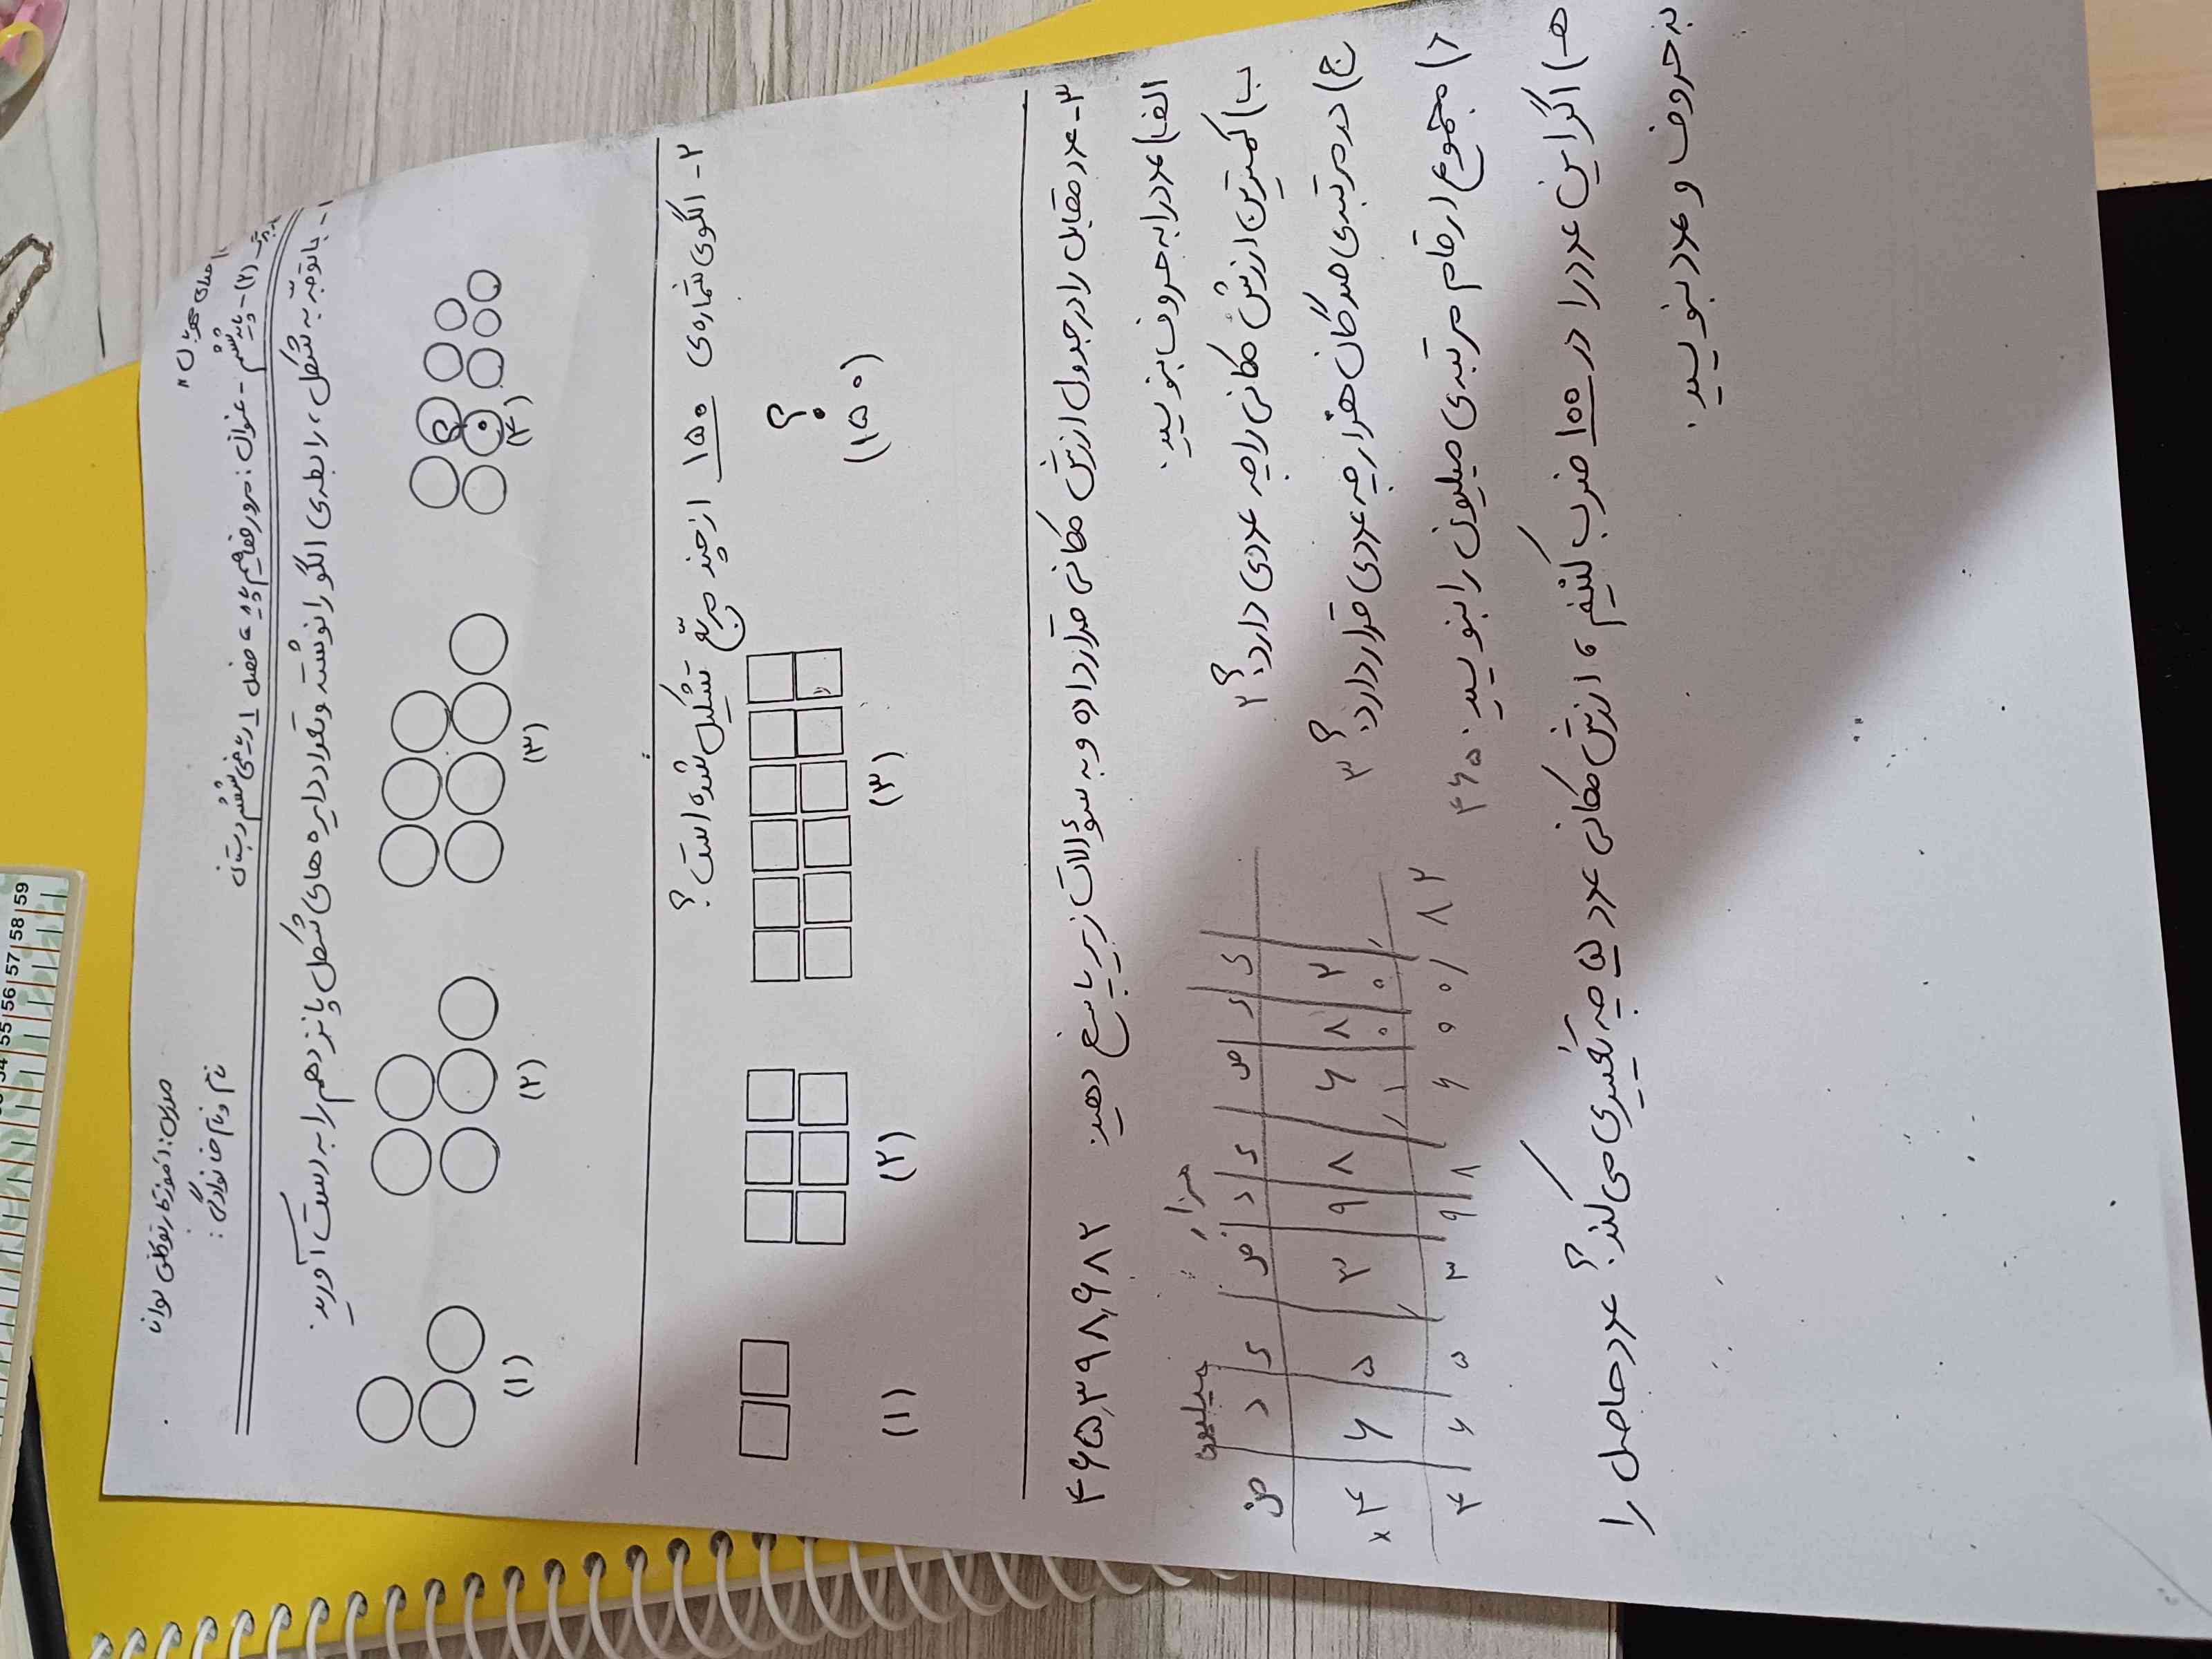 مدرس: آموزگار توکلی توانا
نام و نام خانوادگی:
(۲) - پایه ششم - عنوان: مرور مفاهیم پایه ، فصل ۱ ریاضی ششم دبستان
۱- با توجه به شکل، رابطه‌ی الگو را نوشته و تعداد دایره های شکل پانزدهم را به دست آورید.
(۱) (۲) (۳) (۴)
۲- الگوی شماره‌ی ۱۵۰ از چند مربع تشکیل شده است؟
؟
(۱) (۲) (۳) (۱۵۰)
۳- عدد مقابل را در جدول ارزش مکانی قرار داده و به سؤالات زیر پاسخ دهید. ۴۶۵,۳۹۸,۶۸۲
الف) عدد را به حروف بنویسید.
ب) کمترین ارزش مکانی را چه عددی دارد؟ ۲
ج) در مرتبه‌ی صدگان هزار چه عددی قرار دارد؟ ۳
د) مجموع ارقام مرتبه‌ی میلیون را بنویسید. ۴۶۵
میلیون هزار
ص د ی ص د ی ص د ی
×۴ ۶ ۵ ۳ ۹ ۸ ۶ ۸ ۲
۱ ۰ ۰
۴ ۶ ۵ ۳ ۹ ۸ ۶ ۰ ۰ / ۸۲
هـ) اگر این عدد را در ۱۰۰ ضرب کنیم ، ارزش مکانی عدد ۵ چه تغییری می‌کند؟ عدد حاصل را
به حروف و عدد بنویسید.